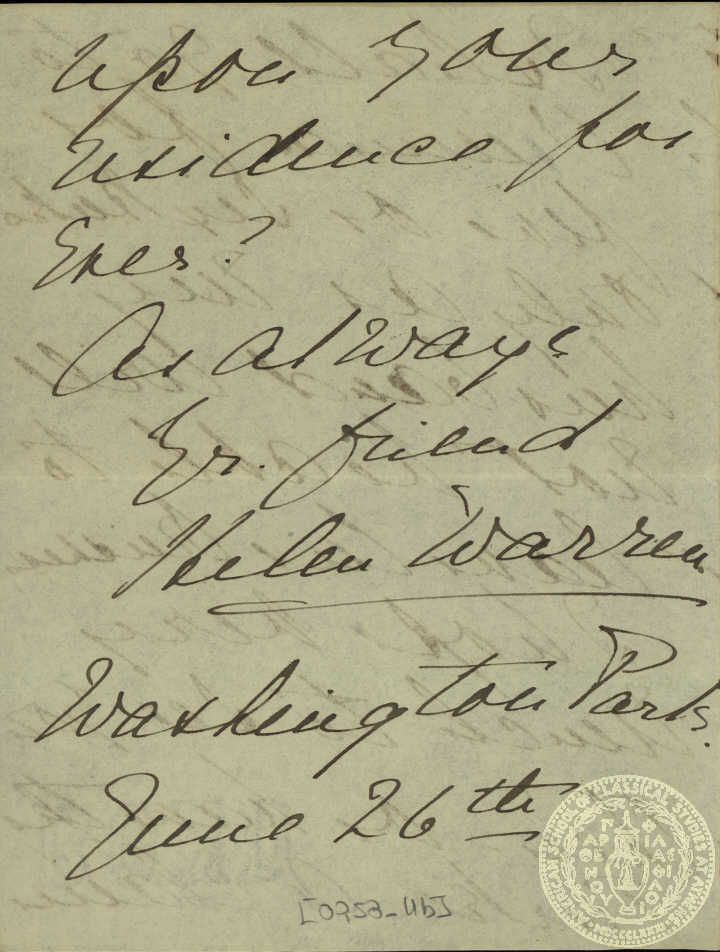 upon your
residence for
Ever?
As always
Yr. friend
Helen Warren
Washington Park.
June 26th
AMERICAN SCHOOL OF CLASSICAL STUDIES AT ATHENS
MDCCCLXXXI